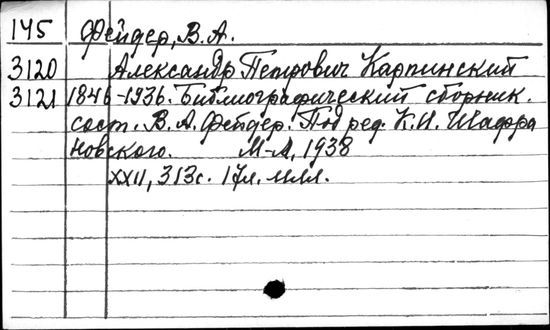 145 Фейдер, В. А.
3120 Александр Петрович Карпинский
3121 1846-1936. Библиографический сборник.
сост. В. А. Фейдер. Под ред. К. И. Шафра
новского. М-Л, 1938
XXII, 313с. 17л. илл.